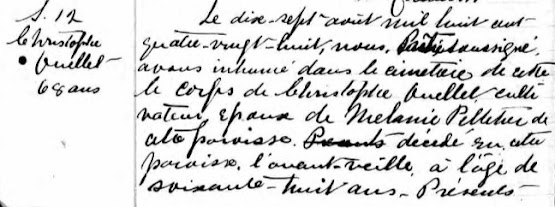 S. 12
Christophe
Ouellet
68 ans
Le dix-sept août mil huit cent
quatre-vingt-huit, nous, Prêtre soussigné,
avons inhumé dans le cimetière de cette
le corps de Christophe Ouellet, culti
vateur, epoux de Melanie Pelletier de
cette paroisse. décédé en cette
paroisse, l'avant-veille, à l'âge de
soixante-huit ans. Présents